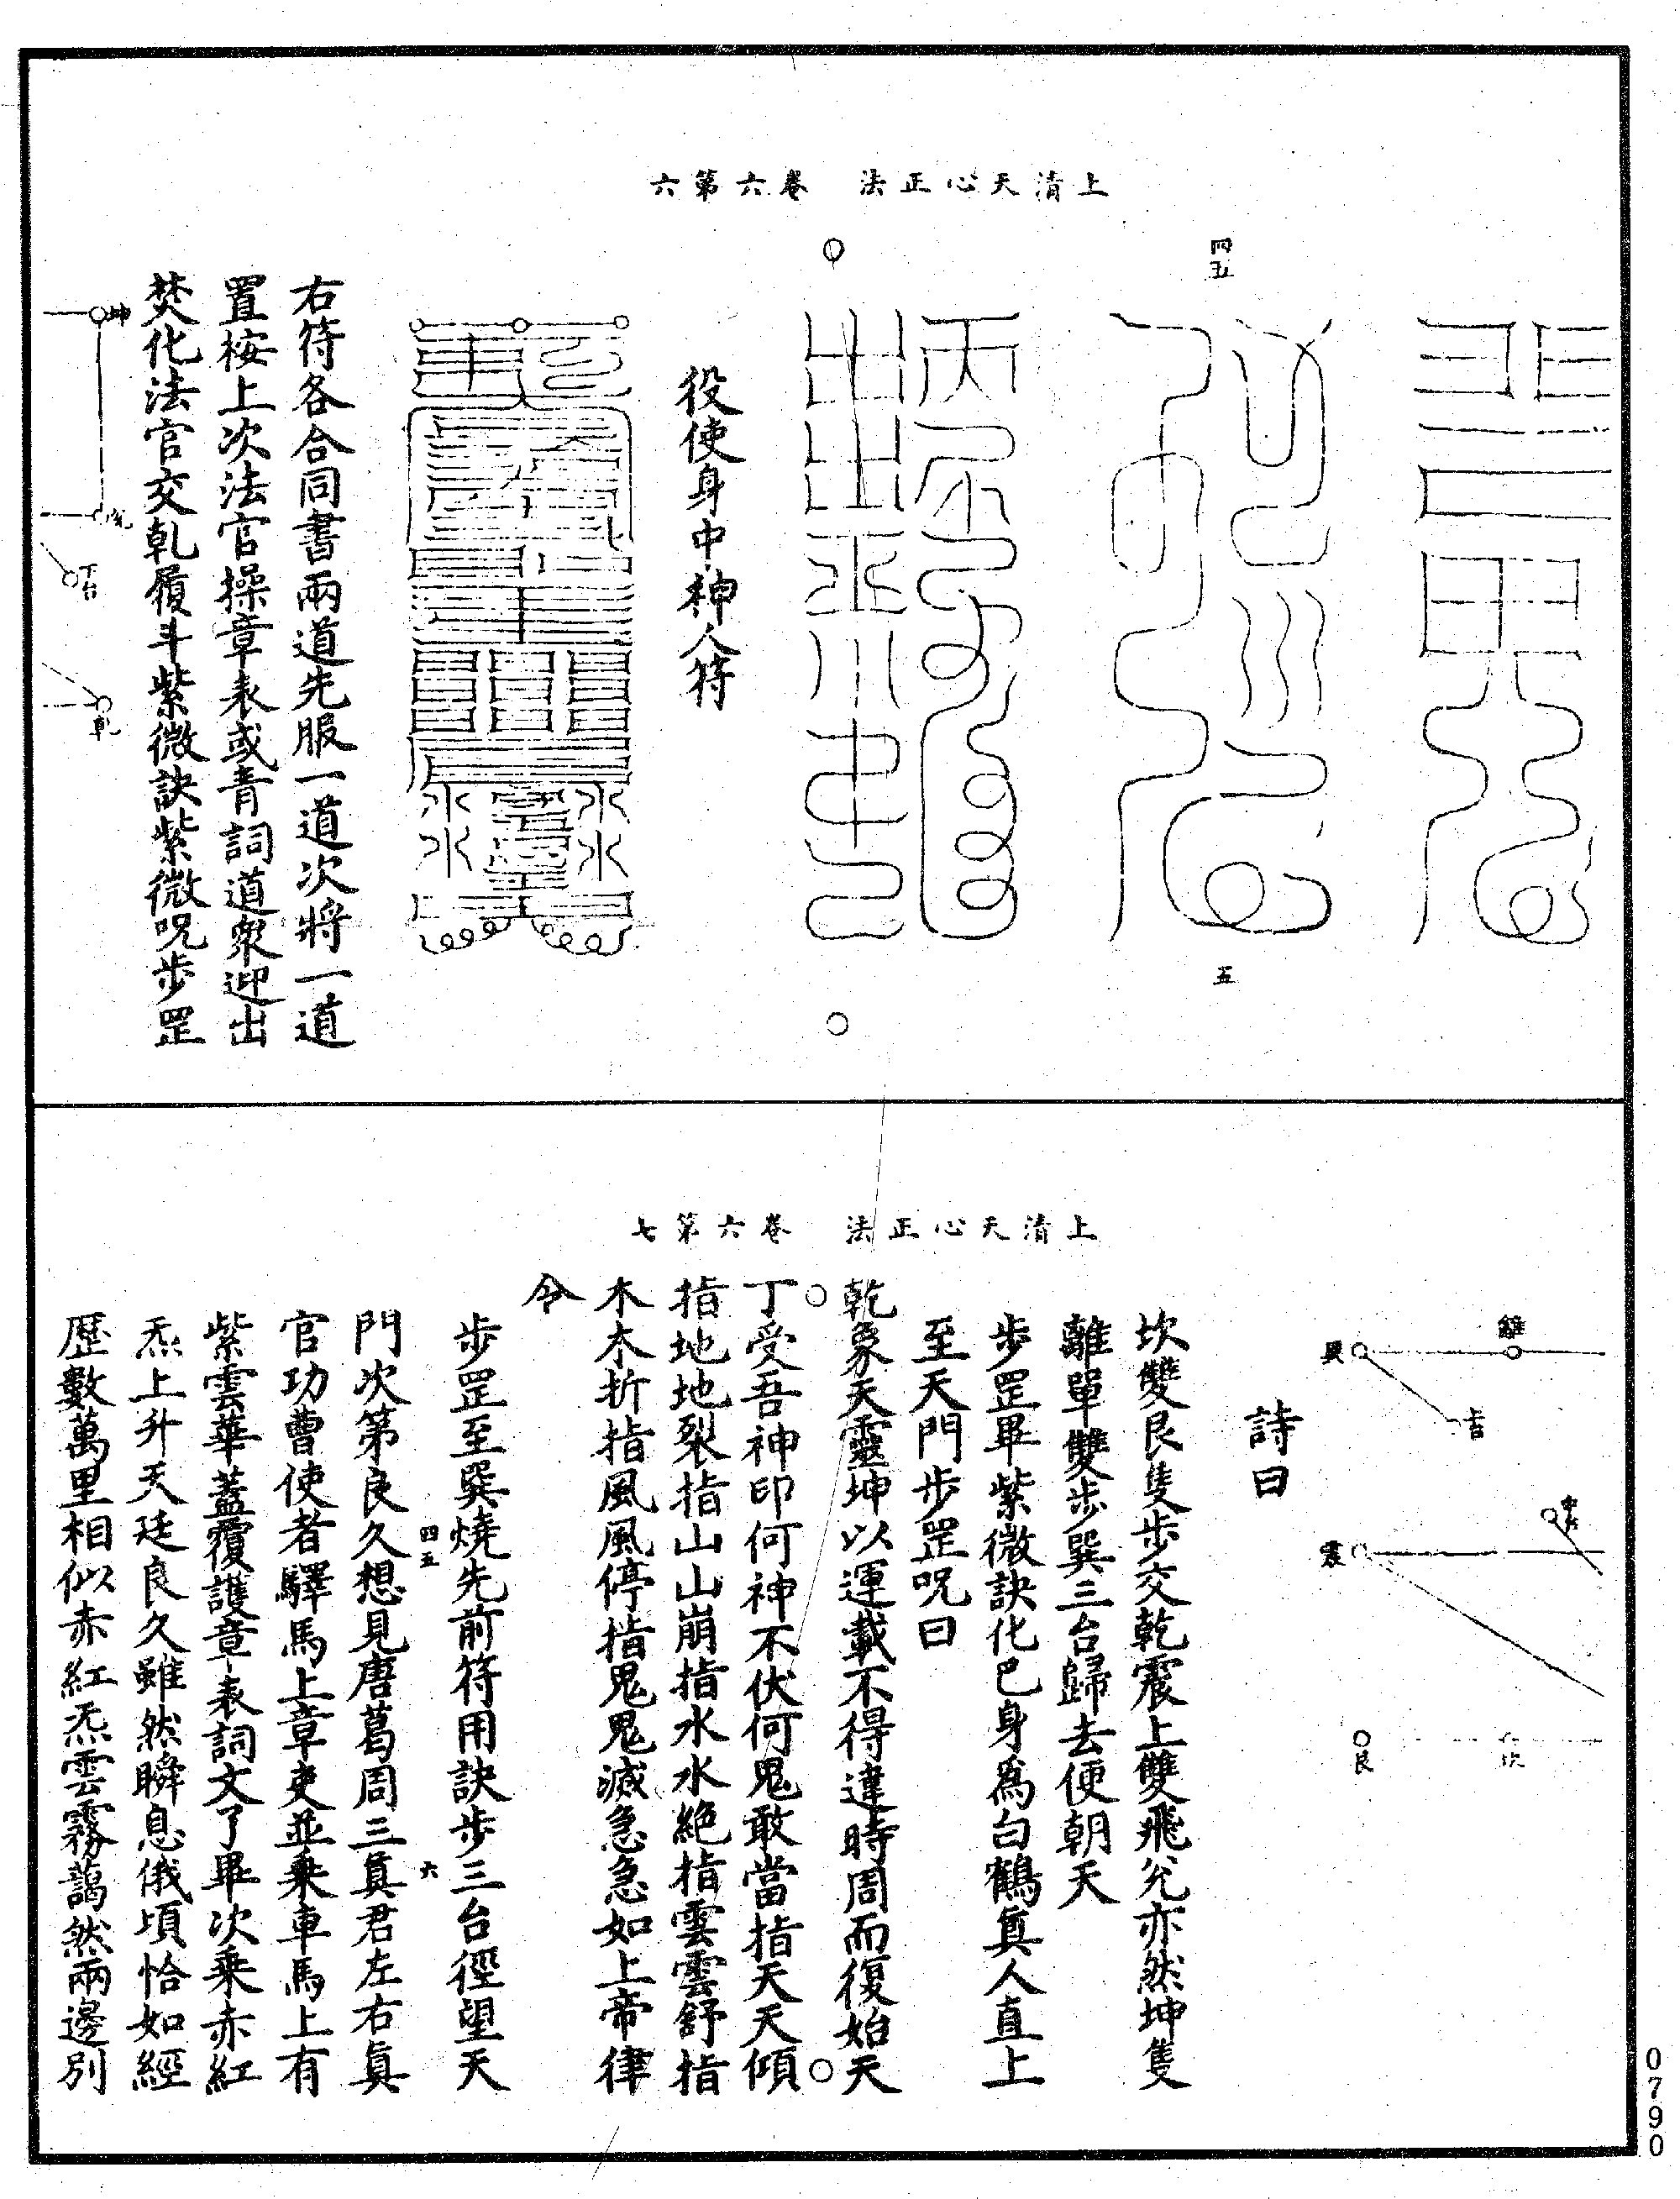 上清天心正法　卷六第六
四五
五
役使身中神人符
右符各合同書兩道先服一道次將一道
置桉上次法官操章表或青詞道衆迎出
焚化法官交乹履斗紫微訣紫微呪步罡
坤
兊
下台
乾
上清天心正法　卷六第七
離
巽
上台
中台
震
坎
艮
詩曰
坎雙艮隻步交乾震上雙飛兊亦然坤隻
離單雙步巽三台歸去便朝天
步罡畢紫微訣化已身爲白鶴真人直上
至天門步罡呪曰
乾象天靈坤以運載不得違時周而復始天
丁受吾神印何神不伏何鬼敢當指天天傾
指地地裂指山山崩指水水絶指雲雲舒指
木木折指風風停指鬼鬼滅急急如上帝律
令
步罡至巽燒先前符用訣步三台徑望天
四五
六
門次第良久想見唐葛周三真君左右真
官功曹使者驛馬上章吏並乗車馬上有
紫雲華蓋覆護章表詞文了畢次乗赤紅
炁上升天廷良久雖然瞬息俄頃恰如經
歷數萬里相似赤紅炁雲霧藹然兩邊别
0790